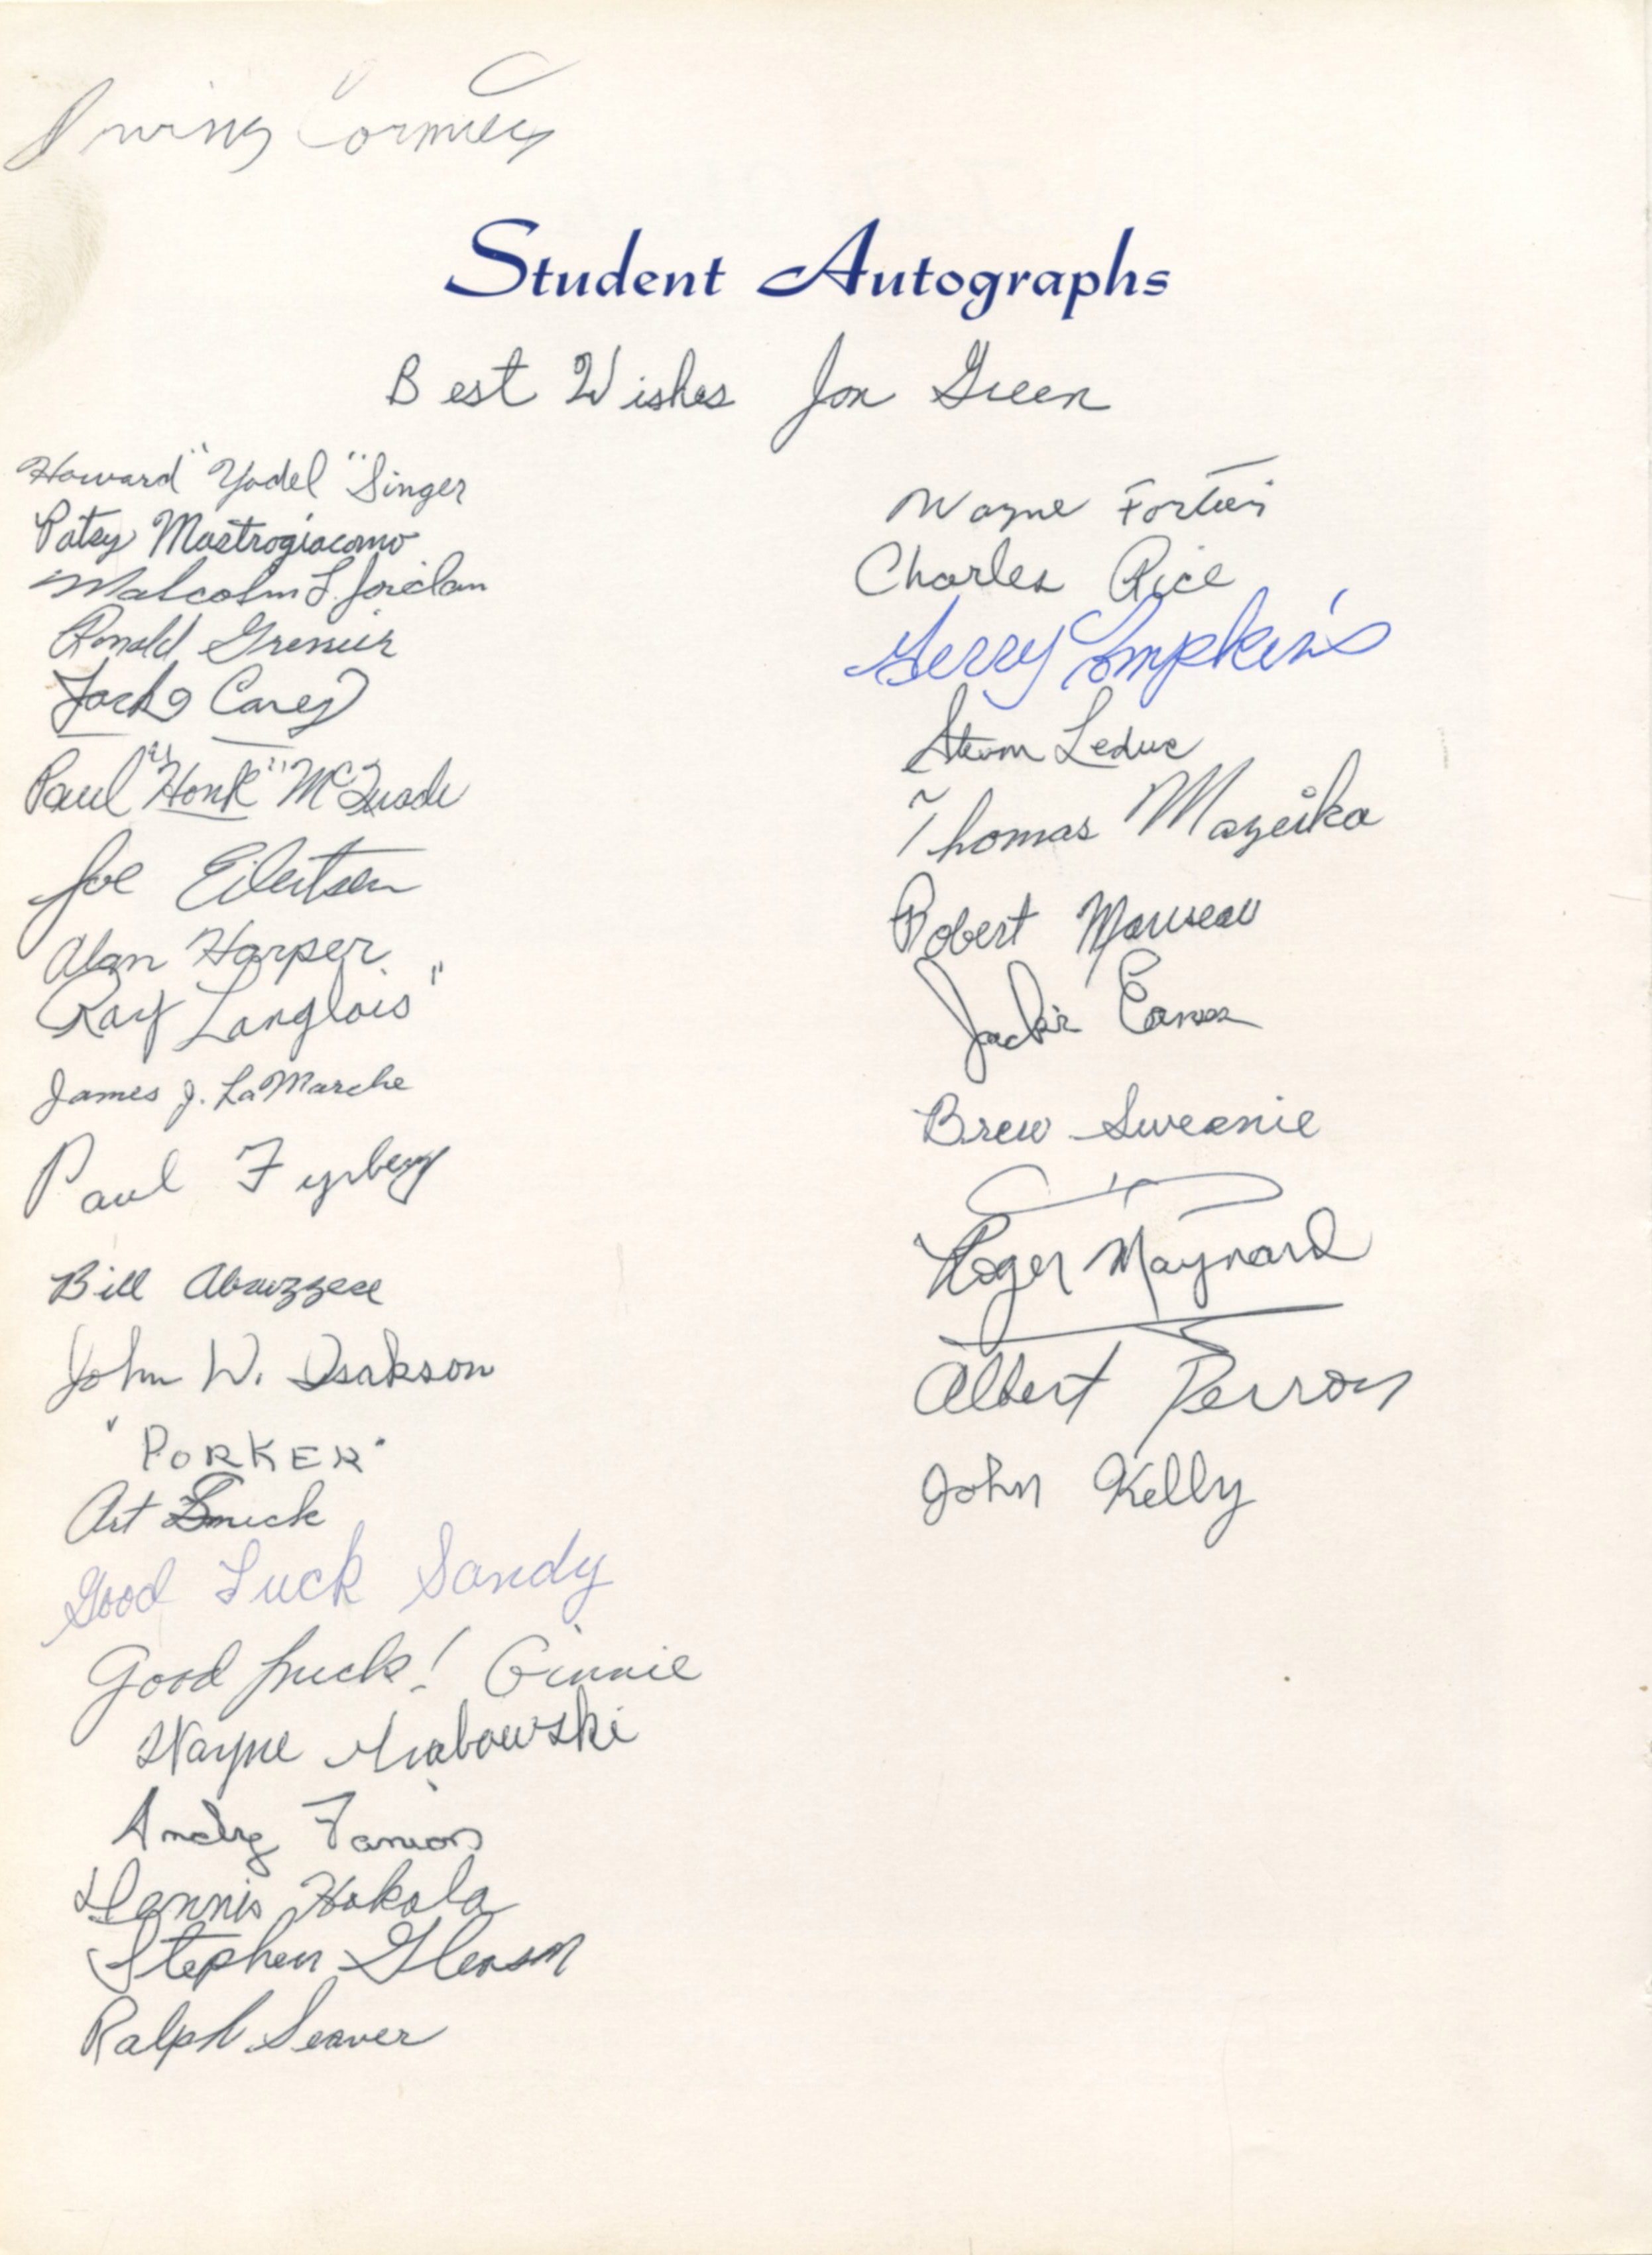 Irving Cormier
Student Autographs
Best Wishes Jon Green
Howard "Yodel" Singer
Patsy Mastrogiacomo
Malcolm L. Jordan
Ronald Grenier
Jack Carey
Paul "Honk" McQuade
Joe Eilertsen
Alan Harper
Ray Langlois
James J. LaMarche
Paul Fyrberg
Bill Abruzzese
John W. Isakson
"PORKER"
Art
Good Luck Sandy
Good Luck! Ginnie
Wayne
Andre
Dennis Hakala
Stephen Gleason
Ralph Seaver
Wayne Fortier
Charles Rice
Gerry Tompkins
Leduc
Thomas Mazeika
Robert
Jackie
Brew Sweenie
Roger Maynard
Albert Perron
John Kelly